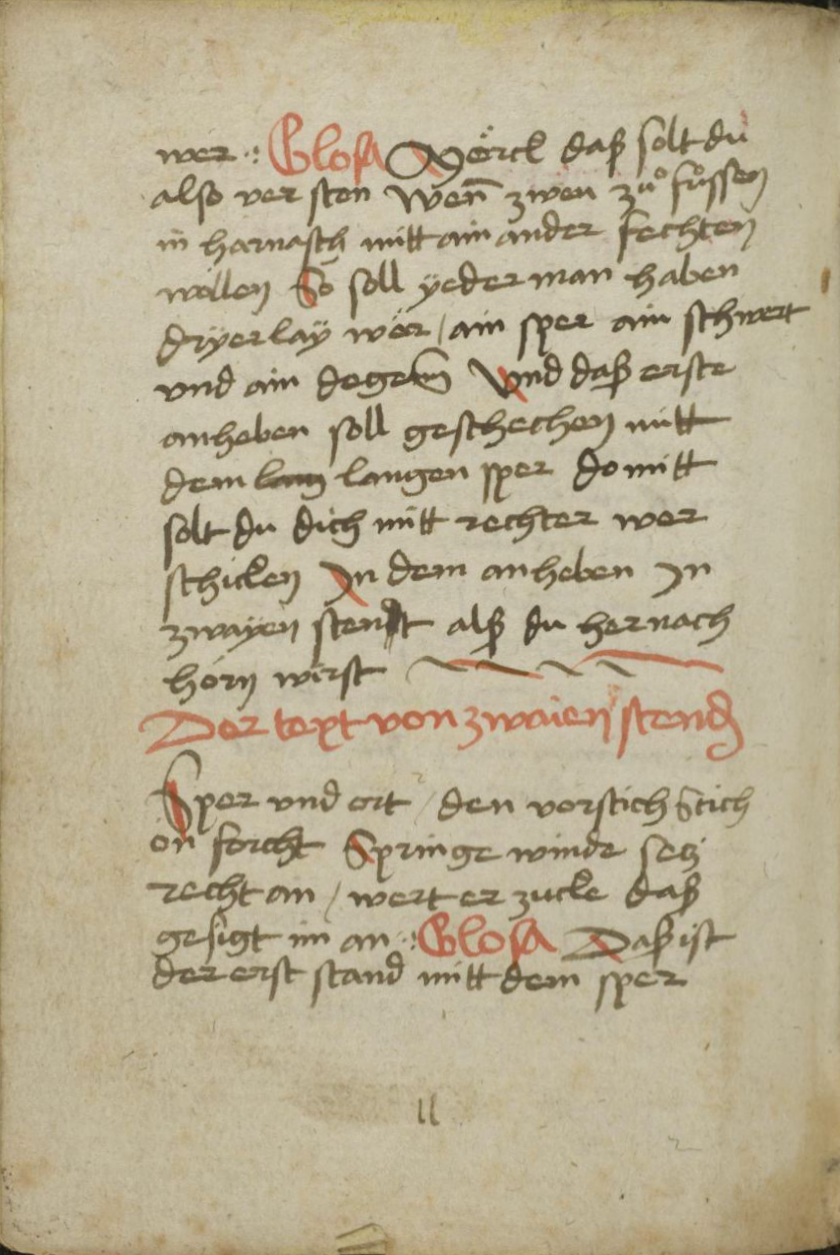 wer ·: Glosa Mörck daß solt du
also ver sten Wen̄ zwen zů fůssen
in harnasch mitt ain ander fechten
wöllen So soll yeder man haben
dryerlaÿ wör / ain sper ain schwert
vnd ain degem Vnd daß erste
anheben soll geschechen mitt
dem lang langen sper do mitt
solt du dich mitt rechter wer
schicken In dem anheben In
zwayen stendt alß du hernach
hörn wirst
Der text von zwaien stend
Sper vnd ort / den vorstich stich
on forcht Springe winde secz
recht an / wert er zucke daß
gesigt im an ·: Glosa Daß ist
der erst stand mitt dem sper
11